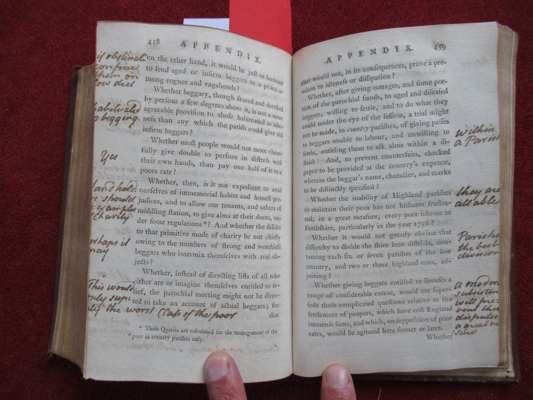 458
APPENDIX.
on the other hand, it would be just or humane
to send aged or infirm beggars to a prison as
young rogues and vagabonds?
Whether beggary, though shared and decided
by persons a few degrees above it, is not a more
agreeable provision to those habituated to idle-
ness than any which the parish could give old
infirm beggars?
Whether most people would not more cheer-
fully give double to persons in distress with
their own hands, than pay one half of it in a
poors rate?
Whether, then, is it not expedient to
ourselves of immemorial habits and
justices, and to allow our tenants, and others of
middling station, to give alms at their doors, un-
der some regulations*? And whether the dislike
to that primitive mode of charity be not chiefly
owing to the numbers of strong and worthless
beggars who intermix themselves with real ob-
jects?
Whether, instead of swelling lists of all who
either are or imagine themselves entitled to re-
lief, the parochial meeting might not be direct-
ed to take an account of actual beggars; for
* These Queries are calculated for the management of the
poor in country parishes only.
confines
them on
to begging
Yes
and hold
we should
examples
charity
perhaps it
may
This would
only
the worst Class of the poor
APPENDIX.
459
that would not, in its consequences, prove a pre-
vention to idleness or dissipation?
Whether, after giving and some por-
tion of the parochial funds, to aged and diseased
beggars, willing to settle, and to do what they
could under the eye of the session, a trial might
not be made, in country parishes, of giving passes
to beggars unable to labour, and unwilling to
settle, entitling them to ask alms within a dis-
trict? And, to prevent counterfeits, checked
paper to be provided at the county's expence,
wherein the beggar's name, character, and marks
to be distinctly specified?
Whether the inability of Highland parishes
to maintain their poor has not hitherto
ed, in a great measure, every poor scheme in
Perthshire, particularly in the year
Whether it would not greatly obviate that
difficulty to divide the shire into districts, con-
taining each six or seven parishes of the low
country, and two or three highland ones, ad-
joining?
Whether giving beggars entitled to
a range of considerable extent, would not super-
sede those complicated questions relative to the
settlement of paupers, which have cost England
immense sums, and which, on supposition of poor
rates, would be agitated here sooner or later.
Whether
Within
a Parish
they are
all able
Parishes
the best
division
a modern
will pre
vent this
dispute
a great